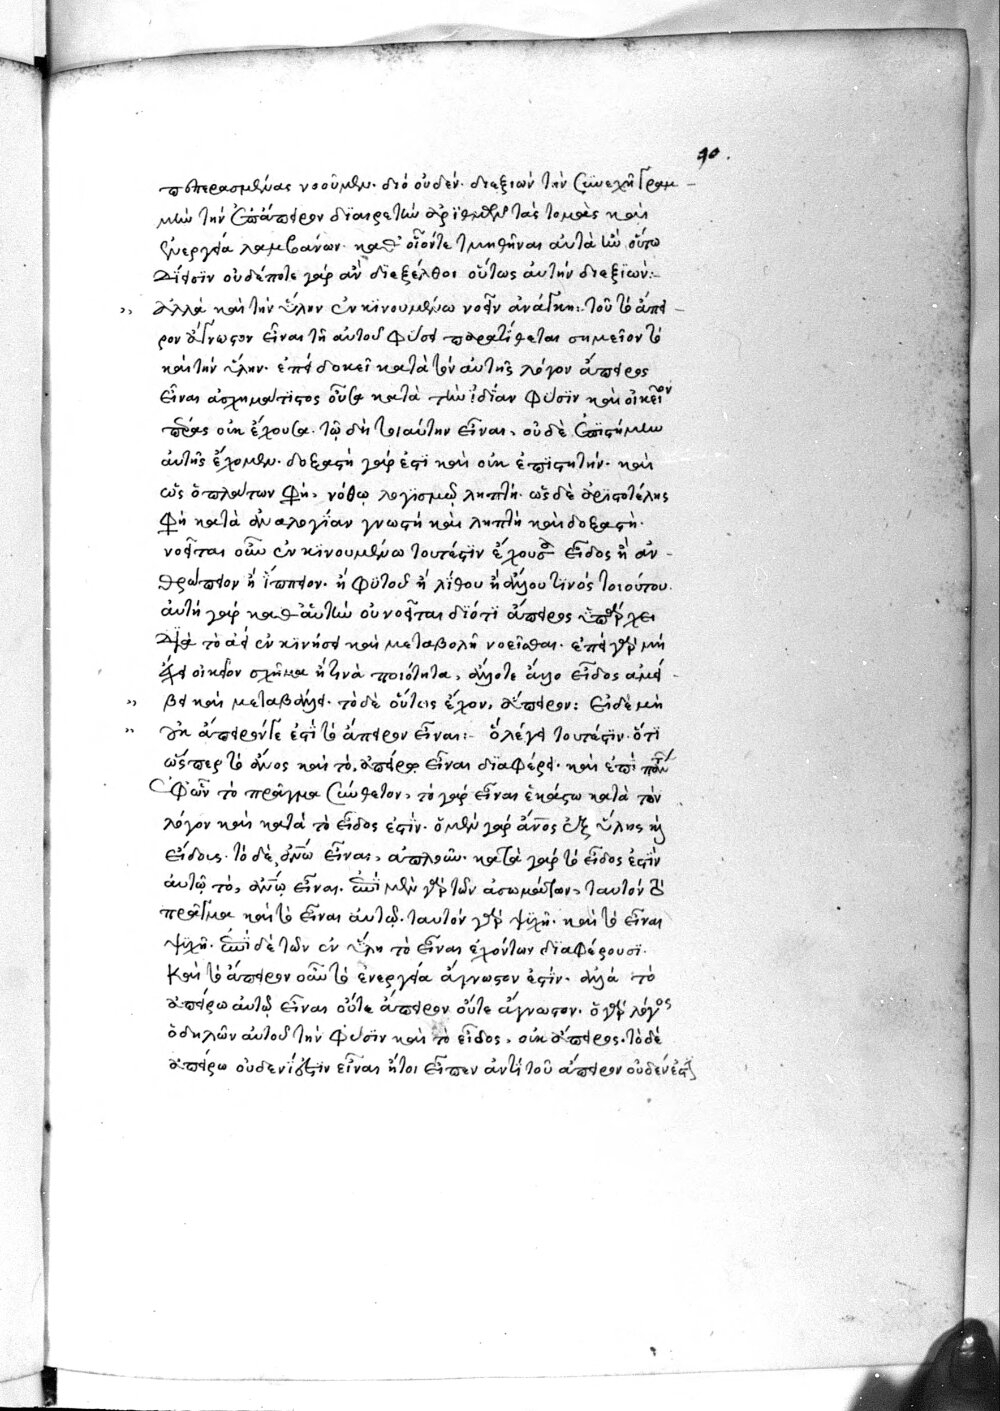 40.
πεπερασμένας νοοῦμεν· διό οὐδέν· διεξιών τὴν συνεχῆ γραμ-
μὴν τὴν ἐπάπειρον διαιρετὴν ἀριθμεῖ τὰς τομὰς καὶ
ἐνεργεία λαμβάνων· καθ' οἷόντε τμηθῆναι αὐτὰ οὕτω
οὐδέποτε γάρ ἂν διεξέλθοι οὕτως αὐτὴν διεξιών:-
Ἀλλὰ καὶ τὴν ὕλην ἐν κινουμένω νοεῖν ἀνάγκη:· τοῦ τὸ ἄπει-
ρον ἄγνωστον εἶναι τῆ αὐτοῦ φύσει παρατίθεται σημεῖον τὸ
καὶ τὴν ὕλην· ἐπεὶ δοκεῖ κατὰ τὸν αὐτῆς λόγον ἄπειρος
εἶναι ἀσχημάτιστος οὖσα κατὰ τὴν ἰδίαν φύσιν καὶ οἰκεῖον
πέρας οὐκ ἔχουσα· τῷ δὴ τοιαύτην εἶναι, οὐδὲ ἐπιστήμην
αὐτῆς ἔχομεν· δοξαστὴ γάρ ἐστι καὶ οὐκ ἐπιστητήν· καὶ
ὡς ὁ πλάτων φη, νόθω λογισμῷ ληπτή· ὡς δὲ ἀριστοτέλης
φη κατὰ ἀναλογίαν γνωστὴ καὶ ληπτὴ καὶ δοξαστή·
νοεῖται οὖν ἐν κινουμένω τουτέστιν ἔχουσα εἶδος ἢ ἀν-
θρώπειον ἢ ἵππειον· ἢ φυτοῦ ἢ λίθου ἢ ἄλλου τινός τοιούτου·
αὐτὴ γάρ καθ' ἑαυτὴν οὐ νοεῖται διότι ἄπειρος ὑπάρχει
διὰ τὸ ἀεὶ ἐν κινήσει καὶ μεταβολῆ νοεῖσθαι· ἐπεὶ γὰρ μὴ
ἔχει οἰκεῖον σχῆμα ἤ τινὰ ποιότητα, ἄλλοτε ἄλλο εἶδος ἀμεί-
βει καὶ μεταβάλλει· τὸ δὲ οὕτως ἔχον, ἄπειρον: Εἰ δὲ μὴ
οὐκ ἀπείρω γε ἐστὶ τὸ ἀπείρον εἶναι:- ὃ λέγει τουτέστιν· ὅτι
ὥσπερ τὸ ἄπειρον καὶ τὸ, ἀπείρω εἶναι διαφέρει· καὶ ἐπὶ πάντων
ἐφ' ὧν τὸ πρᾶγμα σύνθετον, τὸ γάρ εἶναι ἑκάστω κατὰ τὸν
λόγον καὶ κατὰ τὸ εἶδος ἐστίν· ὁ μὲν γάρ ἄνος ἐξ ὕλης καὶ
εἴδους· τὸ δὲ, ἀνω εἶναι, ἁπλοῦν· κατὰ γάρ τὸ εἶδος ἐστὶν
αὐτῷ τὸ, ἀνω εἶναι· ἐπὶ μὲν γὰρ τῶν ἀσωμάτων, ταυτόν τὸ
πρᾶγμα καὶ τὸ εἶναι αὐτῷ· ταυτόν γὰρ ψυχὴ· καὶ τὸ εἶναι
ψυχῆ· ἐπὶ δὲ τῶν ἐν ὕλη τὸ εἶναι ἐχόντων διαφέρουσι·
Καὶ τὸ ἄπειρον οὖν τὸ ἐνεργεία ἄγνωστον ἐστίν· ἀλλὰ τὸ
ἀπείρω αὐτῷ εἶναι οὔτε ἄπειρον οὔτε ἄγνωστον· ὁ γὰρ λόγος
ὁ δηλῶν αὐτοῦ τὴν φύσιν καὶ τὸ εἶδος, οὐκ ἄπειρος· τὸ δὲ
ἀπείρω οὐδενί ἐστιν εἶναι ἤτοι εἶπεν ἀντὶ τοῦ ἄπειρον οὐδέν ἐστι